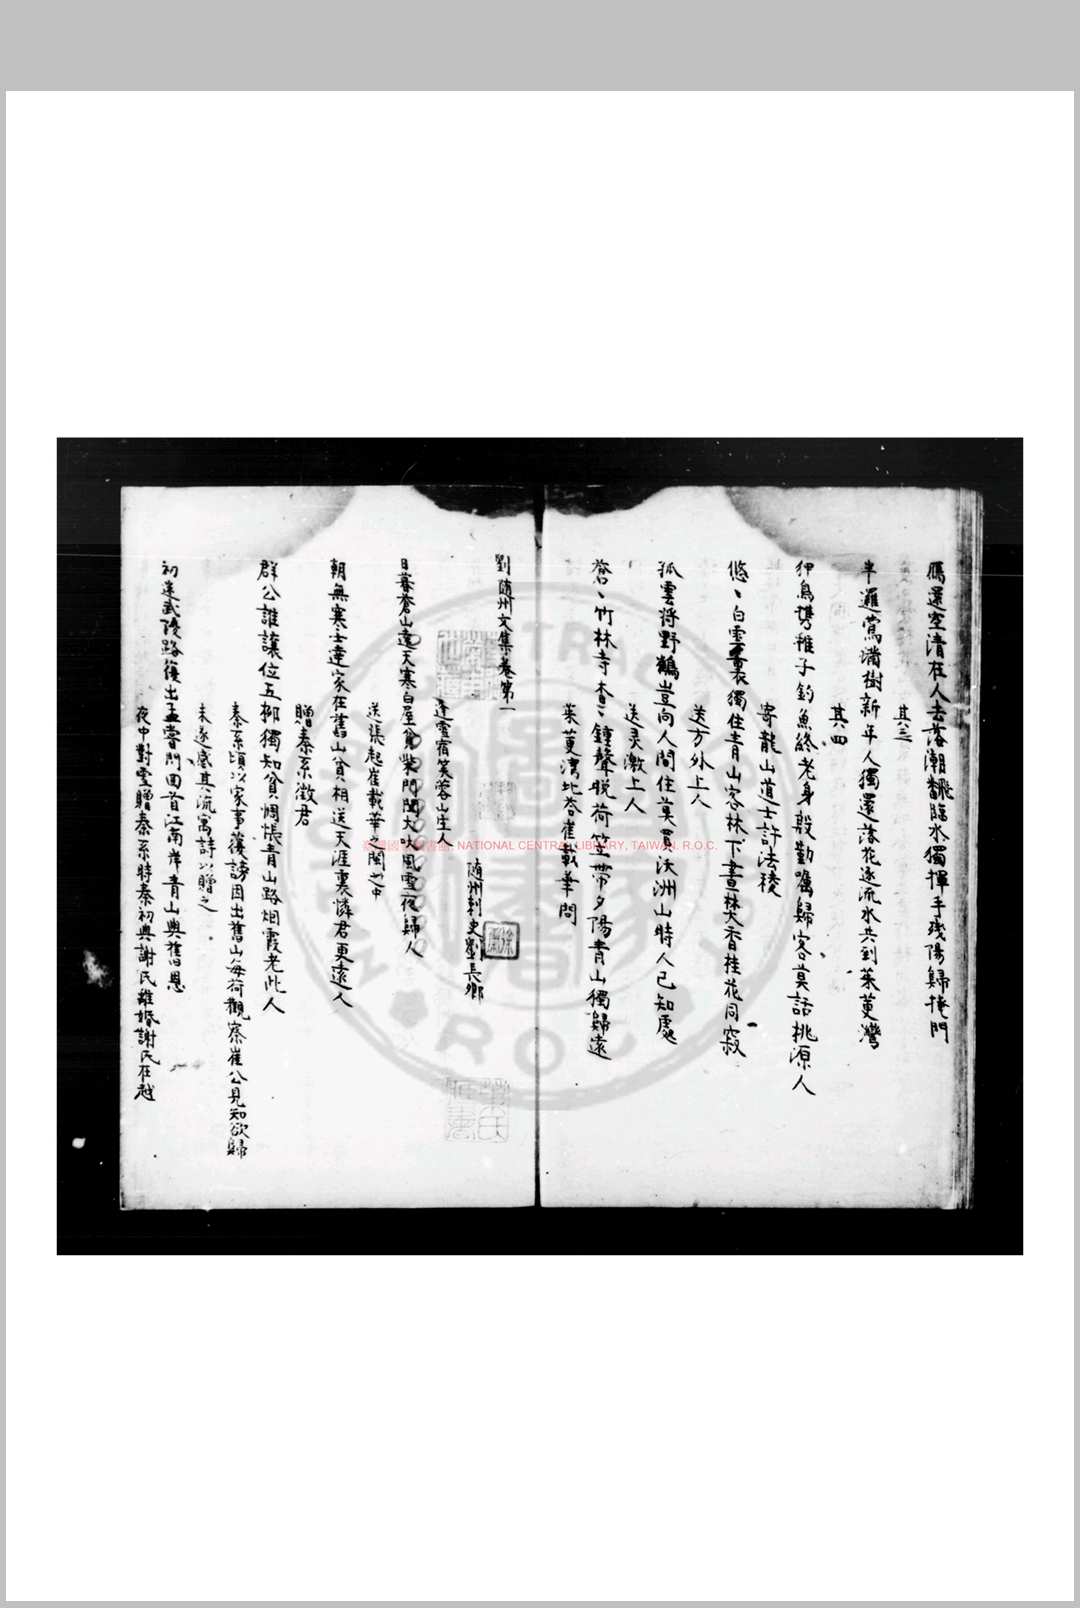 鴈還空清在人去落潮翻臨水獨揮手殘陽歸掩門
其三
半邏鶯滿樹新年人獨還落花逐流水共到茱萸灣
其四
狎鳥携稚子釣魚終老身殷勤囑歸客莫話桃源人
寄龍山道士許法稜
悠丶白雲裏獨住青山客林下晝焚香桂花同寂
送方外上人
孤雲將野鶴豈向人間住莫買沃洲山時人已知處
送灵澈上人
蒼丶竹林寺杳丶鐘聲晚荷笠帶夕陽青山獨歸遠
茱萸灣北答崔載華問
劉隨州文集卷第一
隨州刺史劉長卿
逢雪宿芙蓉山主人
日暮蒼山遠天寒白屋貧柴門聞犬吠風雪夜歸人
送張起崔載華之閩中
朝無寒士達家在舊山貧相送天涯裏憐君更遠人
贈秦系徵君
群公誰讓位五柳獨知貧惆悵青山路烟霞老此人
秦系頃以家事獲謗因出舊山每荷觀察崔公見知欲歸
未遂感其流寓詩以贈之
初迷武陵路復出孟嘗門回首江南岸青山與舊恩
夜中對雪贈秦系時秦初與謝氏離婚謝氏在越
NATIONAL CENTRAL LIBRARY, TAIWAN, R.O.C.